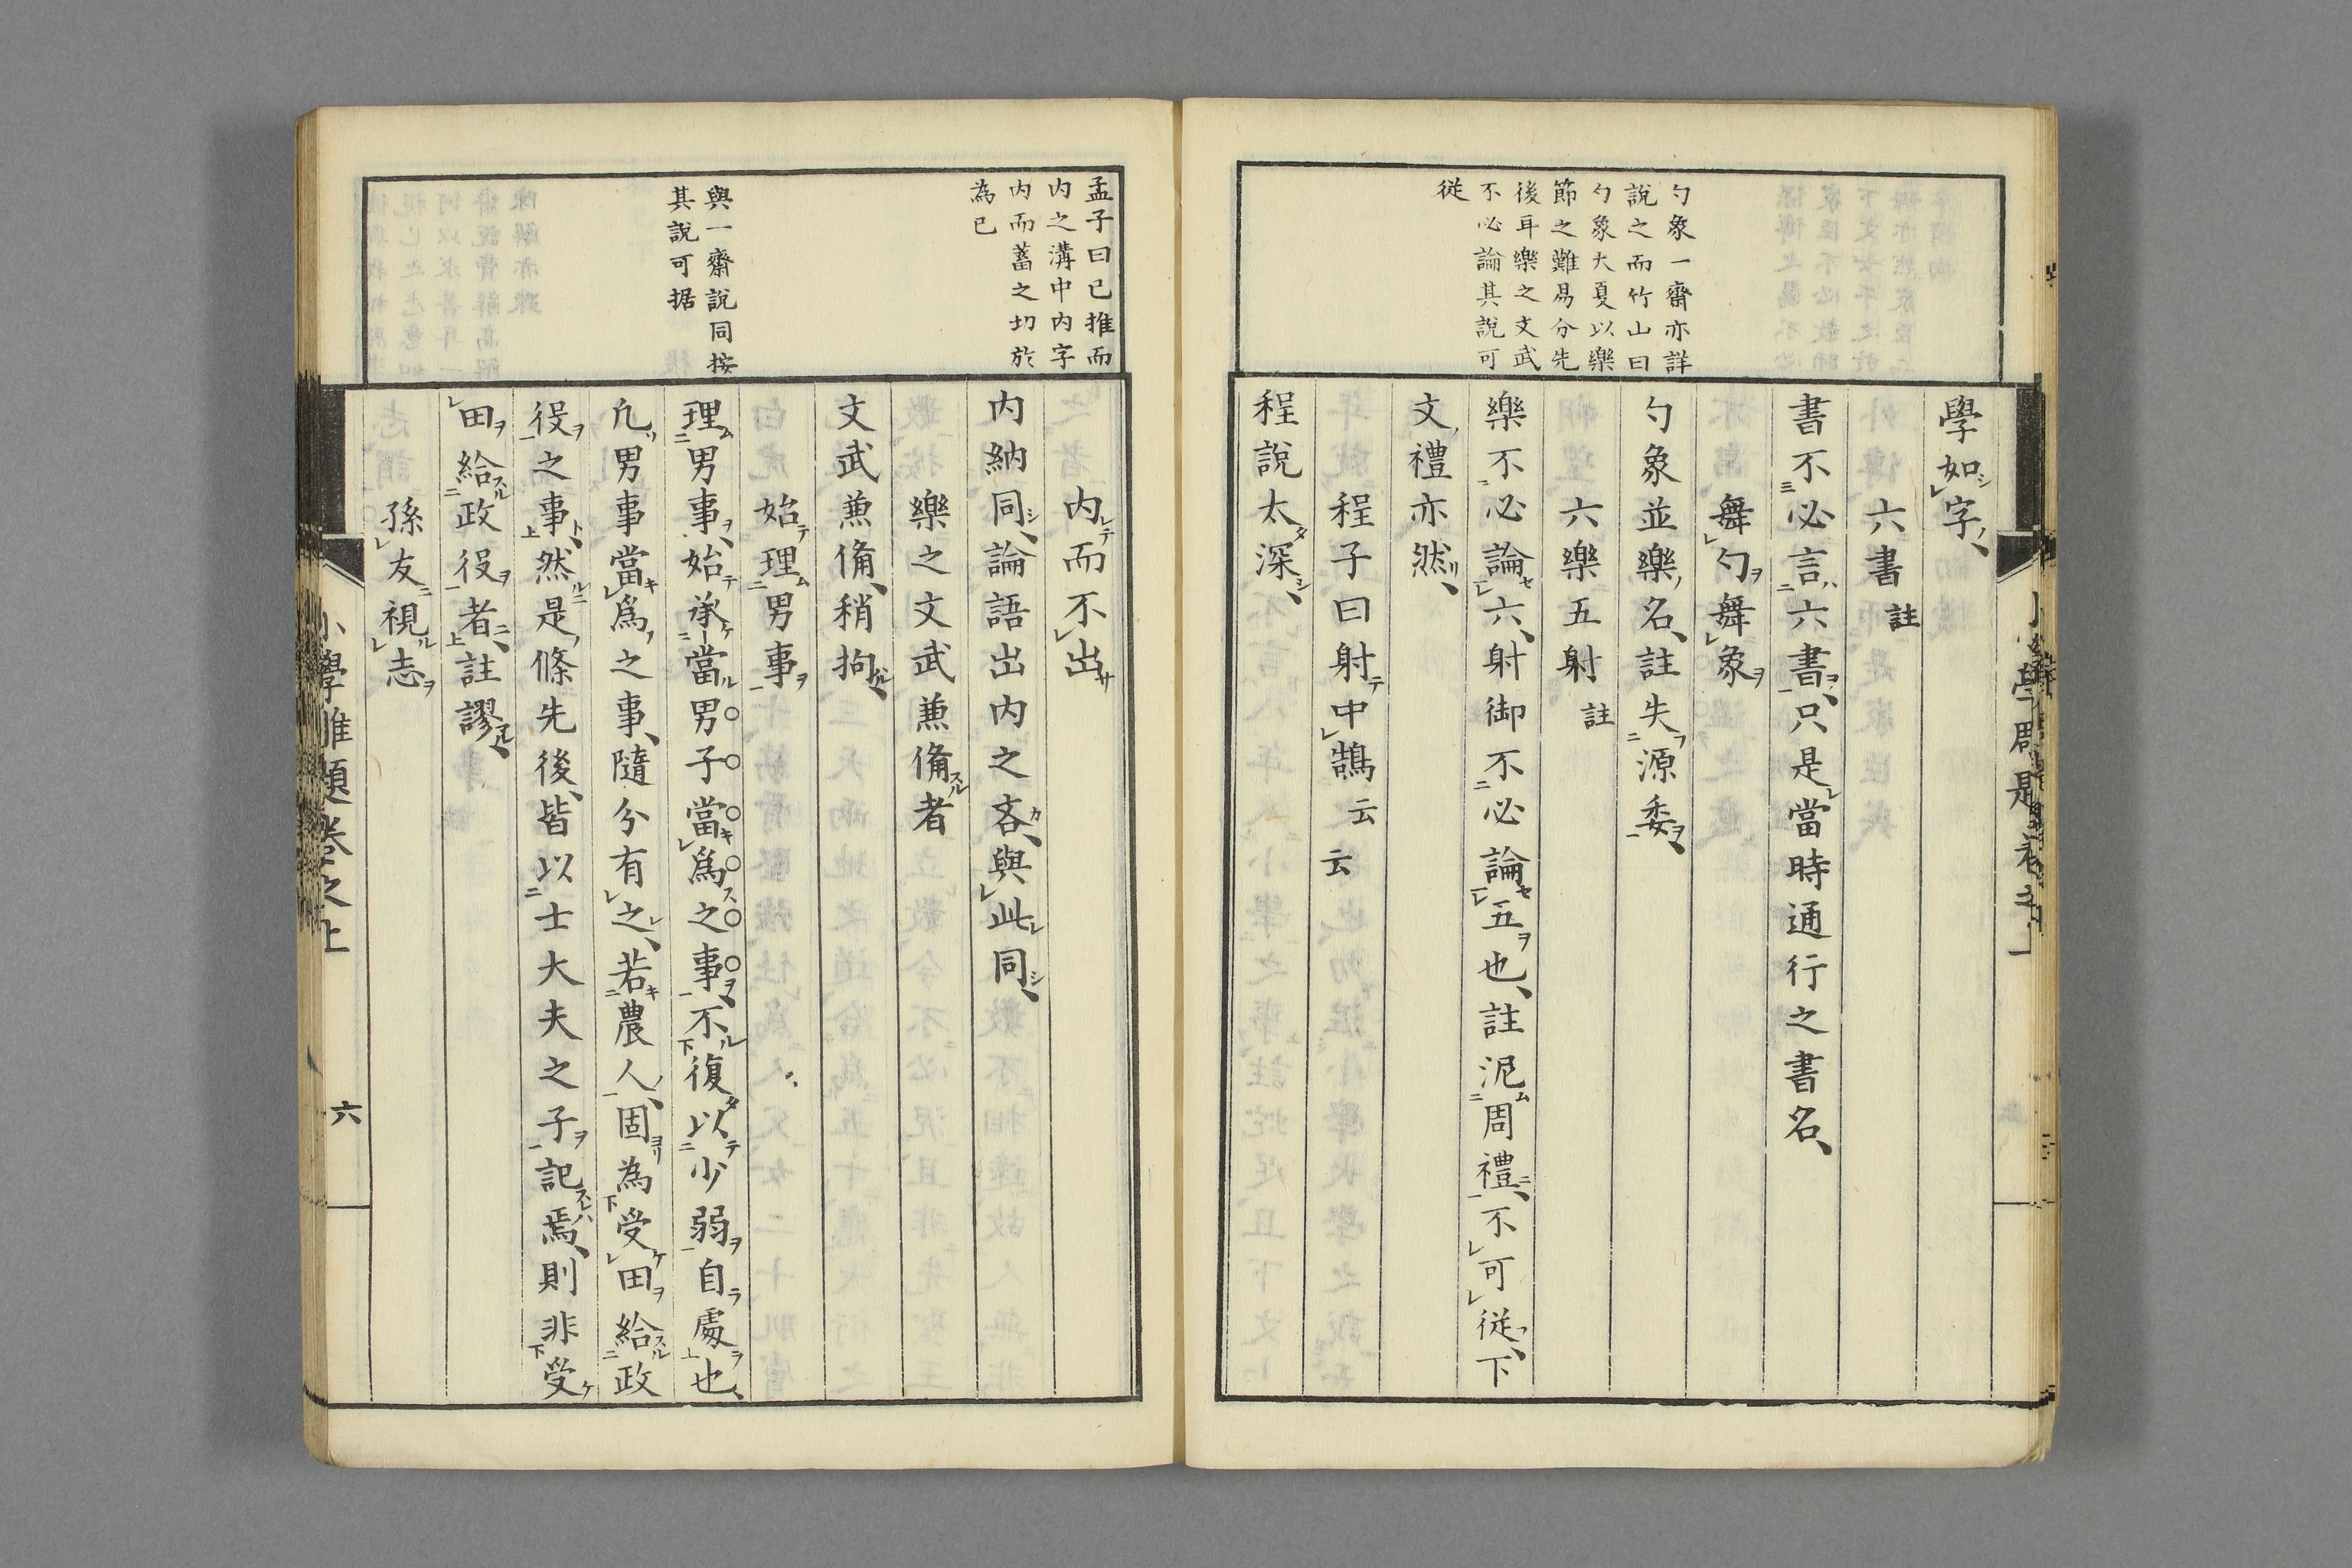 勺象一齋亦詳
說之而竹山曰
勺象大夏以樂
節之難易分先
後耳樂之文武
不必論其說可
従
學如字、
六書註
書不必言六書、只是當時通行之書名、
舞勺舞象
勺象並樂名、註失源委、
六樂五射註
樂不必論六、射御不必論五也、註泥周禮、不可從、下
文禮亦然、
程子曰射中鵠云云
程說太深、
孟子曰已推而
内之溝中内字
内而蓄之切於
為已
與一齋說同按
其說可据
内而不出
内納同、論語出内之吝、與此同、
樂之文武兼備者
文武兼備、稍拘、
始理男事
理男事、始承當男子當爲之事、不復以少弱自處也、
凢男事當爲之事、隨分有之、若農人、固為受田給政
役之事、然是條先後、皆以士大夫之子記焉、則非受
田給政役者、註謬、
孫友視志
小學雕題卷之上
六